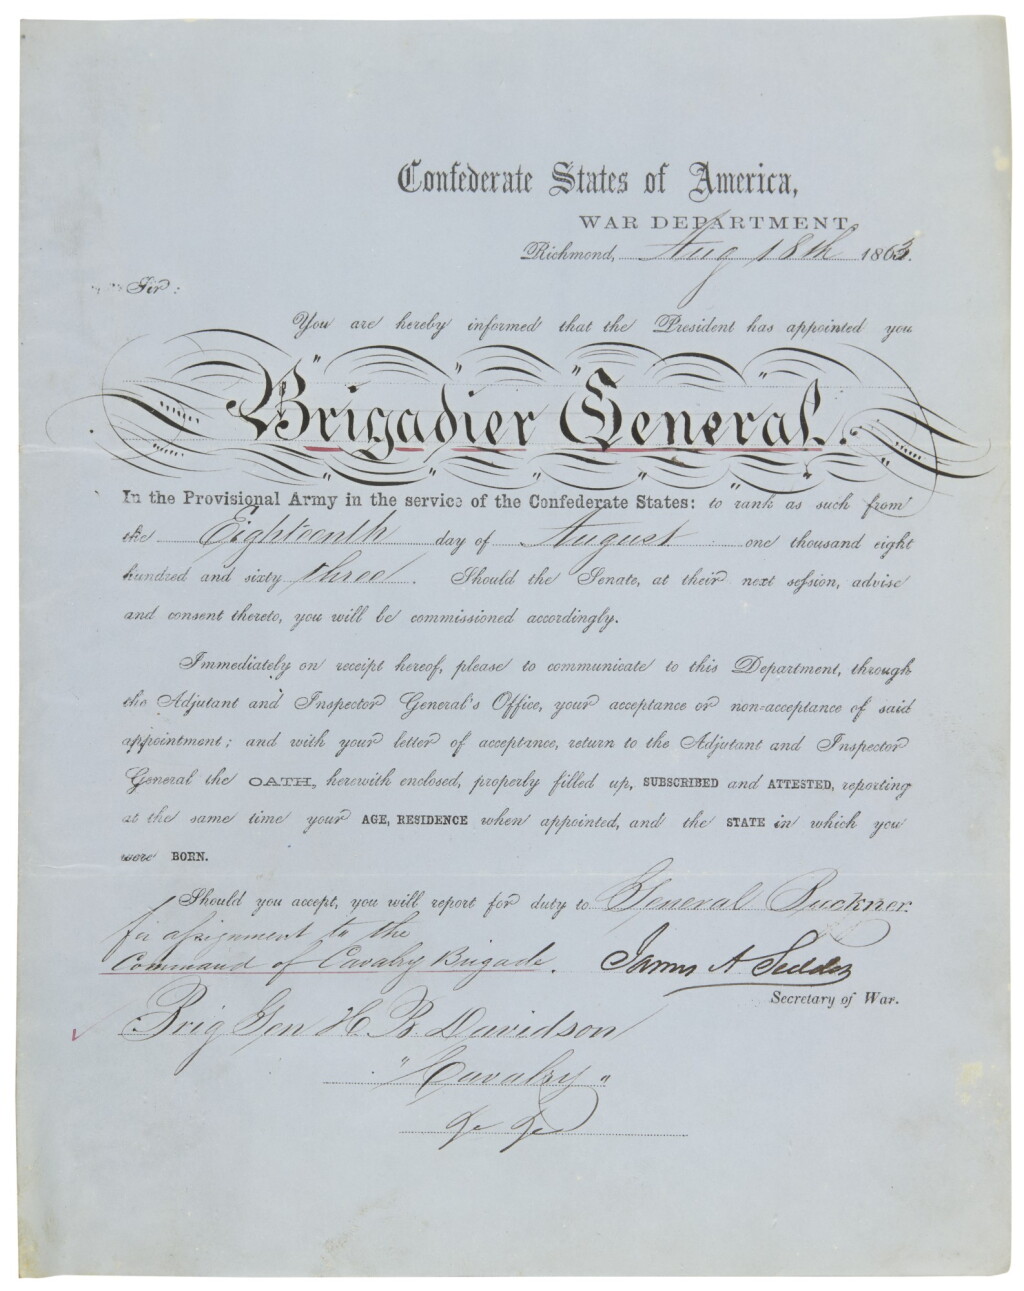 Confederate States of America,
WAR DEPARTMENT,
Richmond, Aug 18th 1863.
Sir:
You are hereby informed that the President has appointed you
Brigadier General.
In the Provisional Army in the service of the Confederate States: to rank as such from
the Eighteenth day of August one thousand eight
hundred and sixty three. Should the Senate, at their next session, advise
and consent thereto, you will be commissioned accordingly.
Immediately on receipt hereof, please to communicate to this Department, through
the Adjutant and Inspector General's Office, your acceptance or non=acceptance of said
appointment; and with your letter of acceptance, return to the Adjutant and Inspector
General the OATH, herewith enclosed, properly filled up, SUBSCRIBED and ATTESTED, reporting
at the same time your AGE, RESIDENCE when appointed, and the STATE in which you
were BORN.
Should you accept, you will report for duty to General Buckner
for assignment to the
Command of Cavalry Brigade.
James A Seddon
Secretary of War.
Brig Gen H. B. Davidson
"Cavalry"
&c &c